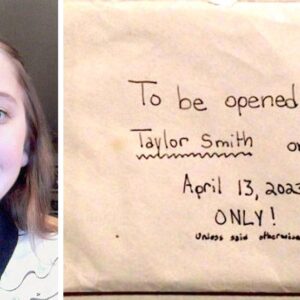 To be opened
Taylor Smith
April 13, 2023
ONLY!
Unless said otherwise